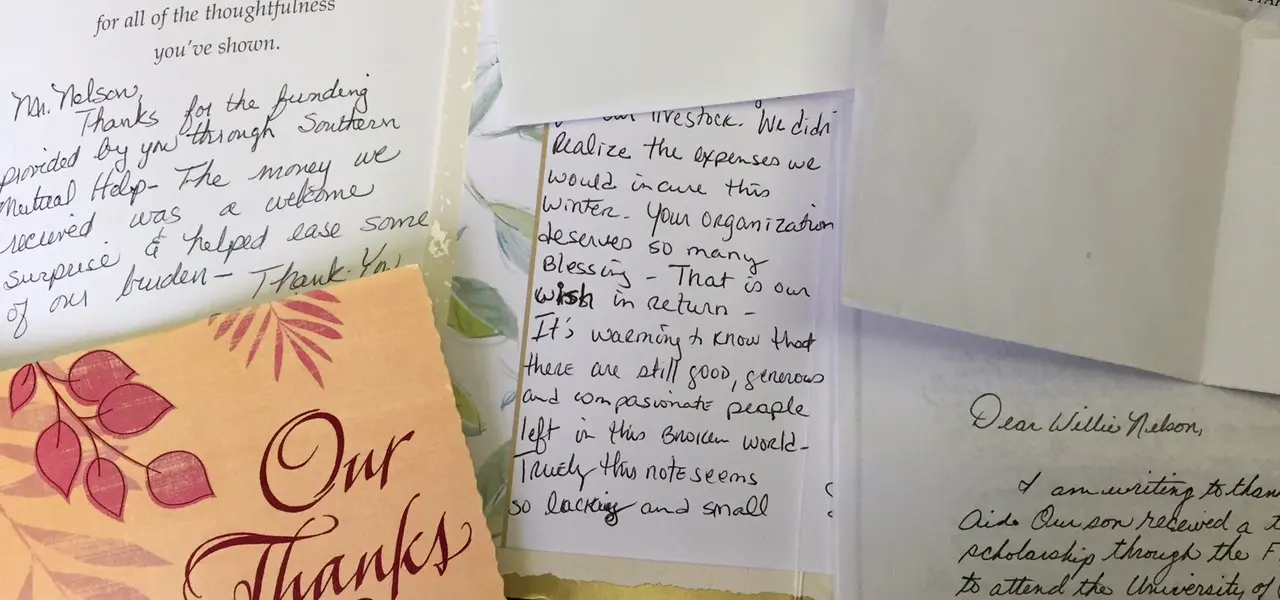 for all of the thoughtfulness
you've shown.
Mr. Nelson,
Thanks for the funding
provided by you through Southern
Mutual Help- The money we
recieved was a welcome
surprise & helped ease some
of our bruden- Thank You
Our
Thanks
our livestock. We didn'
Realize the expenses we
would incure this
winter. Your organization
deserves so many
Blessing - That is our
wish in return -
It's warming to know that
there are still good, generous
and compasionate people
left in this Broken world-
Truely this note seems
so lacking and small
Dear Willie Nelson,
I am writing to than
Aid. Our son received a
scholarship through the F
to attend the University of